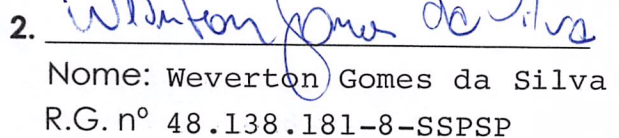 2. Weverton Gomes da Silva
Nome: Weverton Gomes da Silva
R.G. nº 48.138.181-8-SSPSP